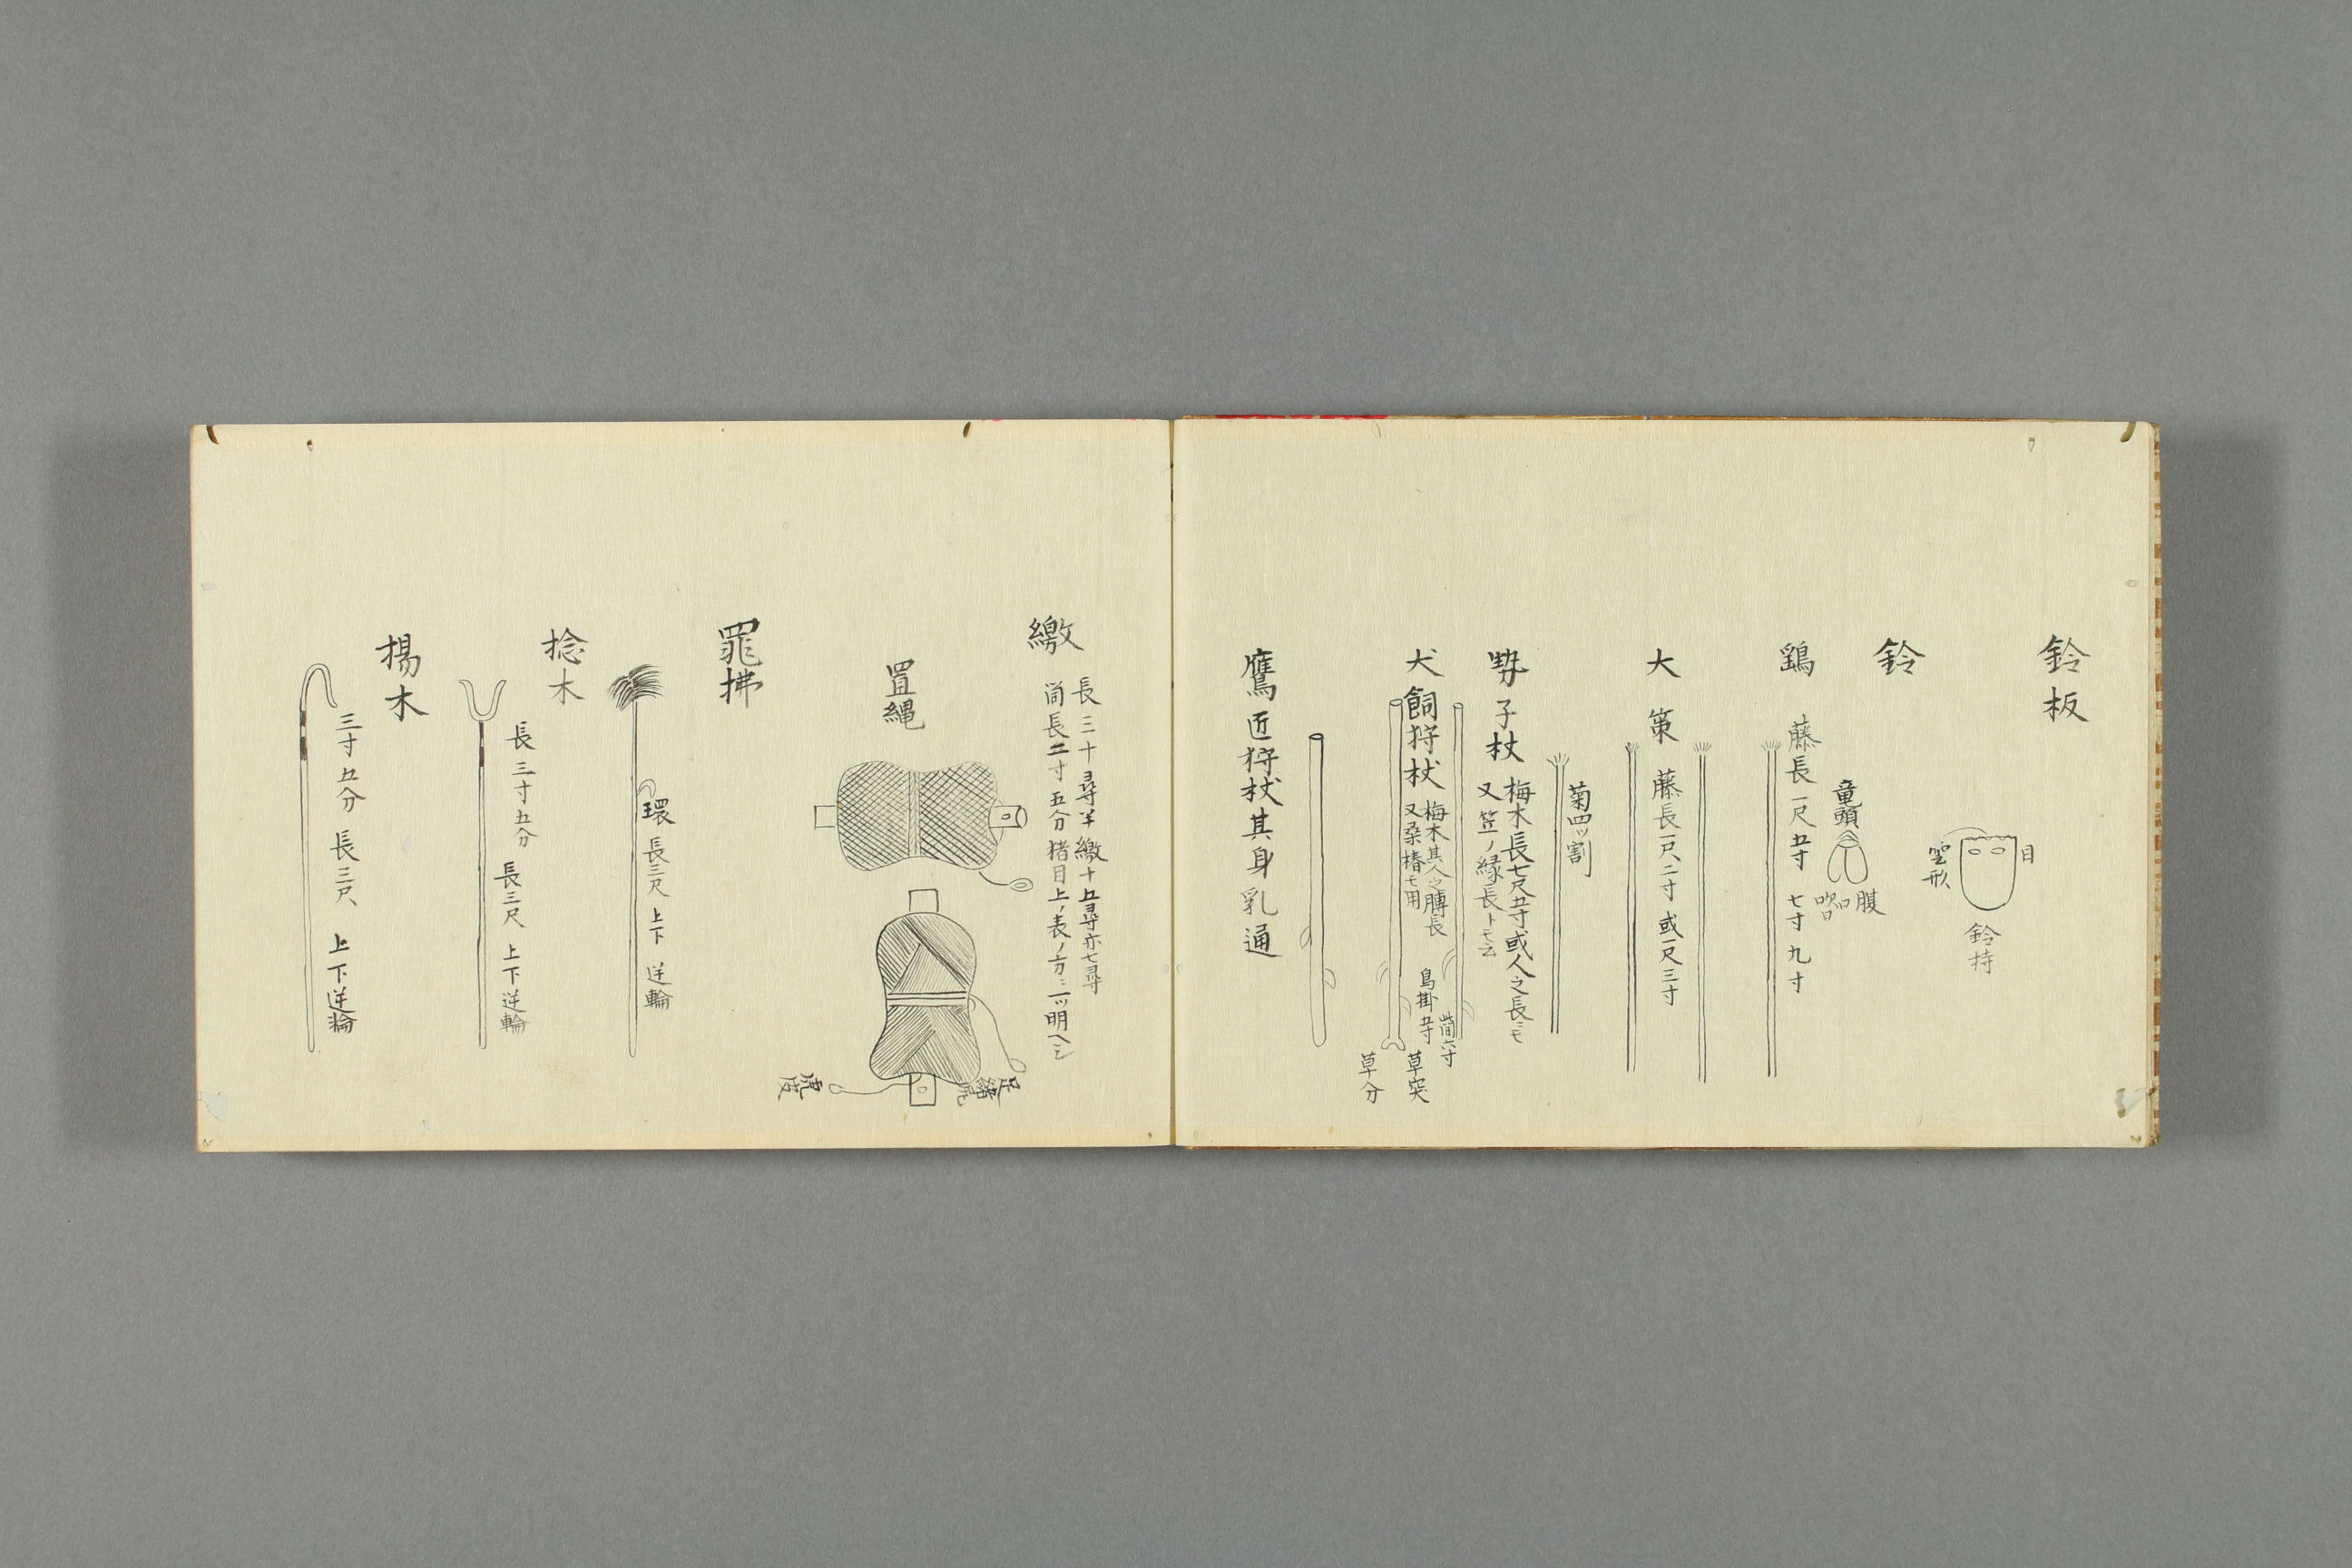 鈴板
目
雲形
鈴持
鈴
竜頭
腹
吹口
藤長一尺五寸 七寸 九寸
大策
藤長一尺二寸 或一尺三寸
菊四ッ割
勢子杖
梅木長七尺五寸或人之長ニモ
又笠ノ縁長トモ云
犬飼狩杖
梅木其人之膞長
又桑椿モ用
鳥掛五寸
筒六寸
草突
草分
鷹匠狩杖其身乳通
繳
長三十尋半繳十五尋亦七尋
筒長二寸五分猪目上ノ表ノ方ニ一ッ明ヘシ
罝縄
足緒
虎皮
罪拂
環
長三尺 上下 逆輪
捻木
長三寸五分 長三尺 上下逆輪
揚木
三寸五分 長三尺 上下逆輪